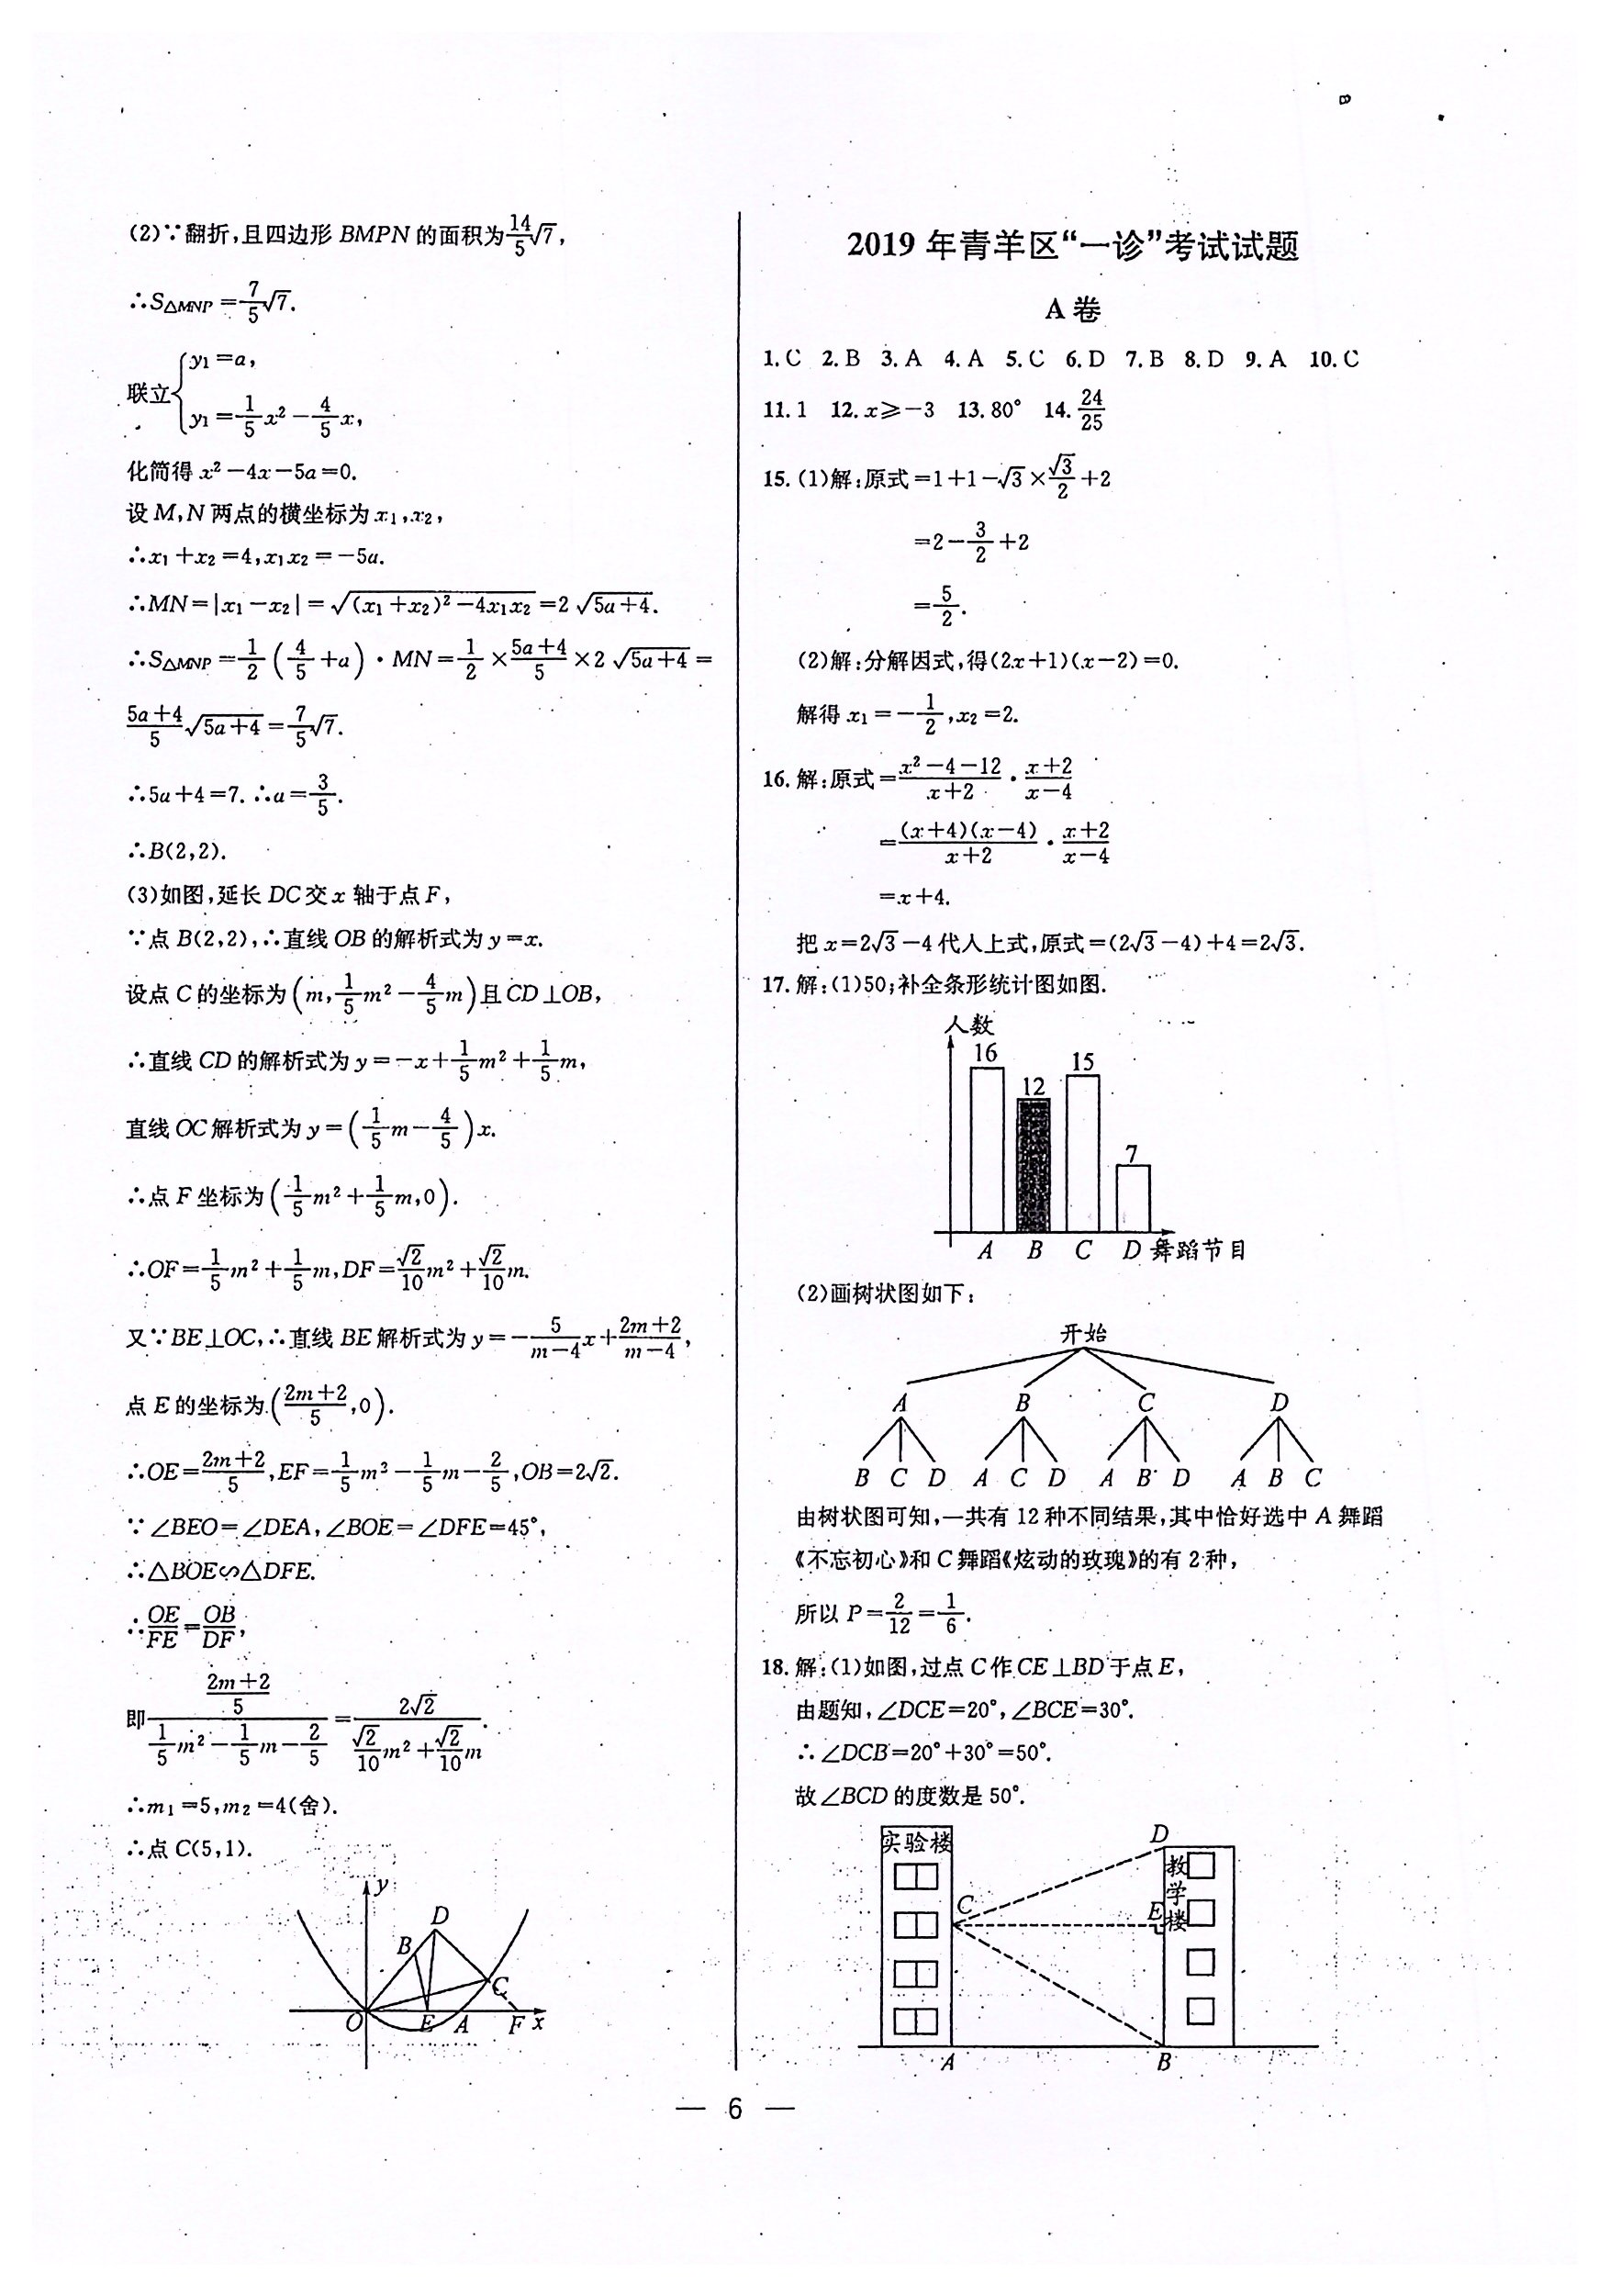 (2)∵翻折,且四边形BMPN的面积为14/5√7,
∴S△MNP=7/5√7.
联立{y₁=a,
y₁=1/5x²-4/5x,
化简得x²-4x-5a=0.
设M,N两点的横坐标为x₁,x₂,
∴x₁+x₂=4,x₁x₂=-5a.
∴MN=|x₁-x₂|=√((x₁+x₂)²-4x₁x₂)=2√(5a+4).
∴S△MNP=1/2(4/5+a)·MN=1/2×(5a+4)/5×2√(5a+4)=
(5a+4)/5√(5a+4)=7/5√7.
∴5a+4=7.∴a=3/5.
∴B(2,2).
(3)如图,延长DC交x轴于点F,
∵点B(2,2),∴直线OB的解析式为y=x.
设点C的坐标为(m,1/5m²-4/5m)且CD⊥OB,
∴直线CD的解析式为y=-x+1/5m²+1/5m,
直线OC解析式为y=(1/5m-4/5)x.
∴点F坐标为(1/5m²+1/5m,0).
∴OF=1/5m²+1/5m,DF=√2/10m²+√2/10m.
又∵BE⊥OC,∴直线BE解析式为y=-5/(m-4)x+(2m+2)/(m-4),
点E的坐标为((2m+2)/5,0).
∴OE=(2m+2)/5,EF=1/5m²-1/5m-2/5,OB=2√2.
∵∠BEO=∠DEA,∠BOE=∠DFE=45°,
∴△BOE∽△DFE.
∴OE/FE=OB/DF,
即((2m+2)/5)/(1/5m²-1/5m-2/5)=2√2/(√2/10m²+√2/10m).
∴m₁=5,m₂=4(舍).
∴点C(5,1).
y
D
B
C
O E A F x
2019年青羊区“一诊”考试试题
A卷
1.C 2.B 3.A 4.A 5.C 6.D 7.B 8.D 9.A 10.C
11.1 12.x≥-3 13.80° 14.24/25
15.(1)解:原式=1+1-√3×√3/2+2
=2-3/2+2
=5/2.
(2)解:分解因式,得(2x+1)(x-2)=0.
解得x₁=-1/2,x₂=2.
16.解:原式=(x²-4-12)/(x+2)·(x+2)/(x-4)
=(x+4)(x-4)/(x+2)·(x+2)/(x-4)
=x+4.
把x=2√3-4代人上式,原式=(2√3-4)+4=2√3.
17.解:(1)50;补全条形统计图如图.
人数
16
15
12
7
A B C D 舞蹈节目
(2)画树状图如下:
开始
A B C D
B C D A C D A B D A B C
由树状图可知,一共有12种不同结果,其中恰好选中A舞蹈
《不忘初心》和C舞蹈《炫动的玫瑰》的有2种,
所以P=2/12=1/6.
18.解:(1)如图,过点C作CE⊥BD于点E,
由题知,∠DCE=20°,∠BCE=30°.
∴∠DCB=20°+30°=50°.
故∠BCD的度数是50°.
实验楼
D
教学楼
C
E
A B
— 6 —